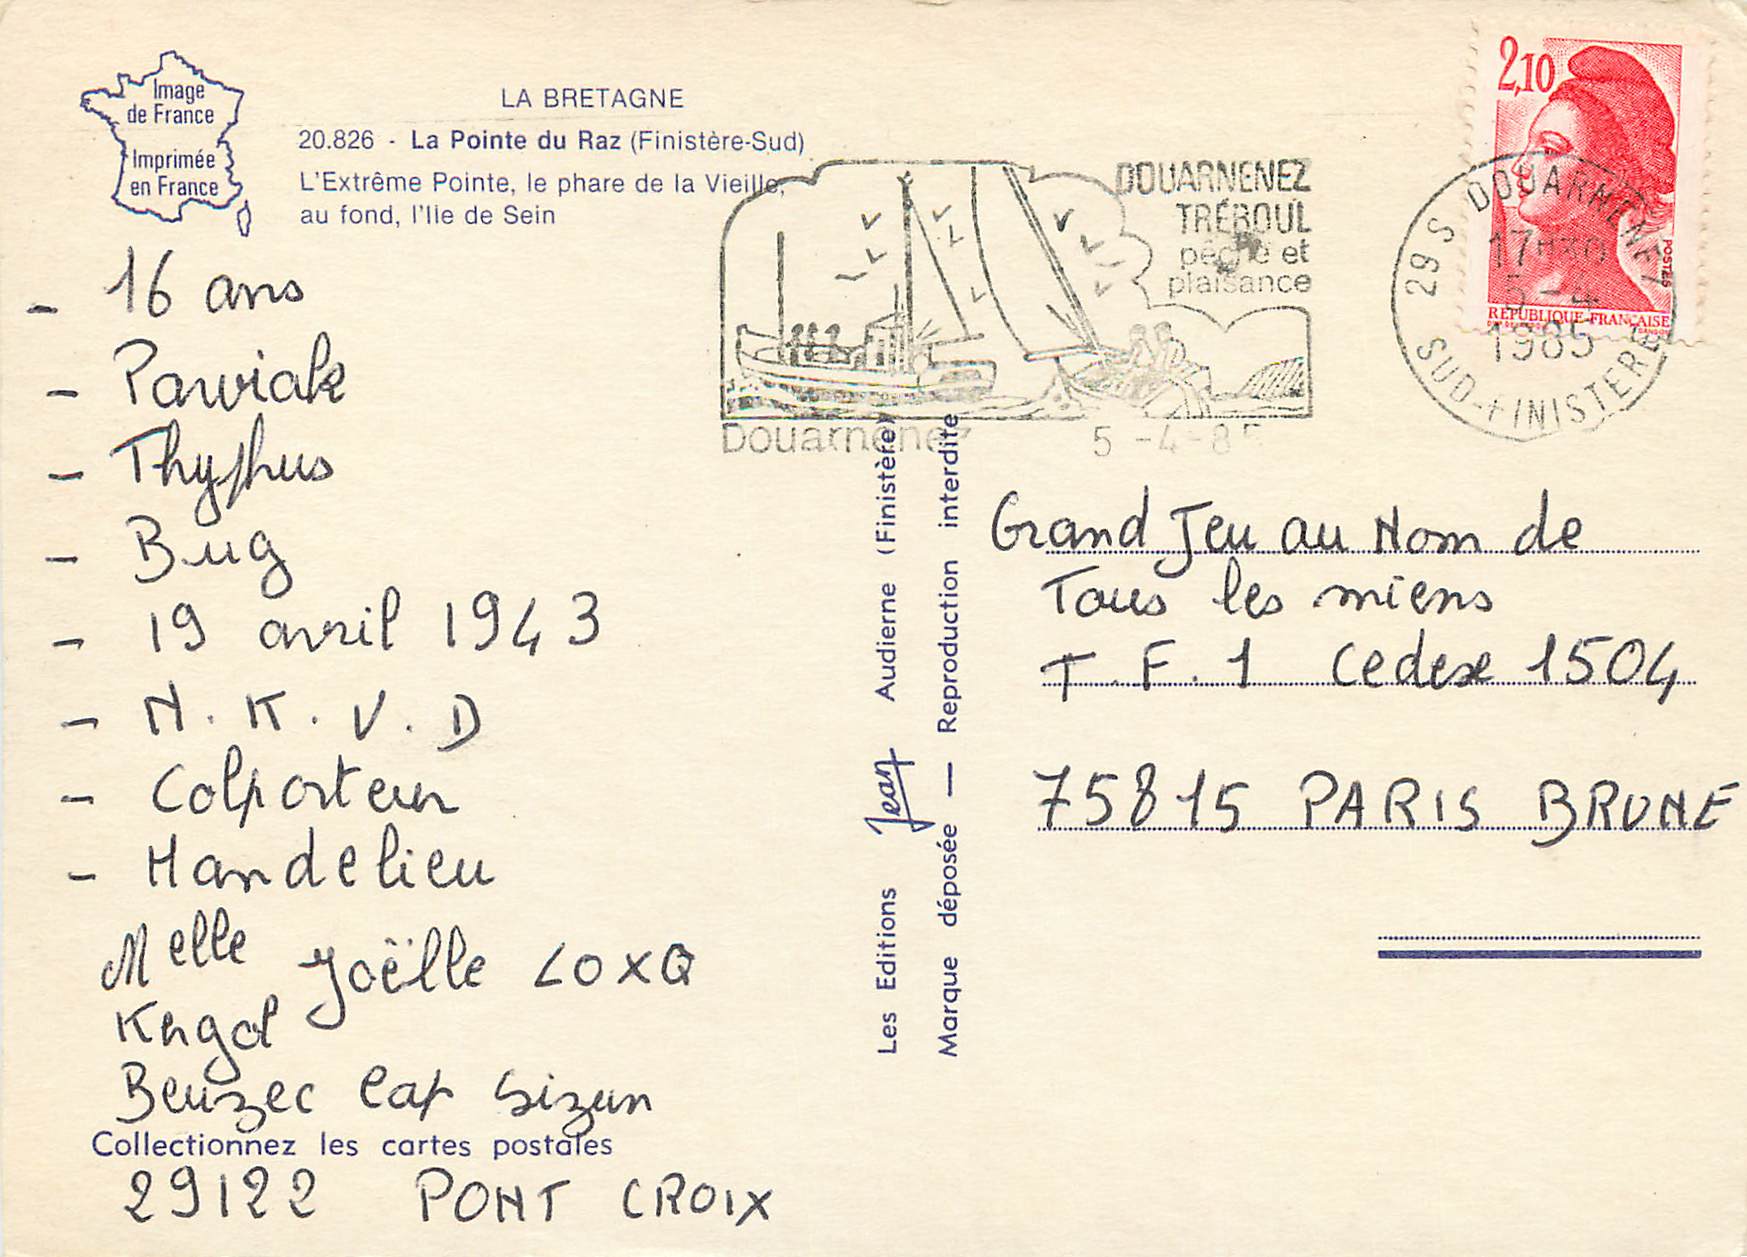 Image
de France
Imprimée
en France
LA BRETAGNE
20.826 - La Pointe du Raz (Finistère-Sud)
L'Extrême Pointe, le phare de la Vieille,
au fond, l'Ile de Sein
- 16 ans
- Pawiak
- Thyphus
- Bug
- 19 avril 1943
- N.K.V.D
- Colporteur
- Mandelieu
Melle Joëlle LOXQ
Kergol
Beuzec Cap Sizun
Collectionnez les cartes postales
29122 PONT CROIX
Les Editions Jean Audierne (Finistère)
Marque déposée — Reproduction interdite
DOUARNENEZ
TRÉBOUL
pêche et
plaisance
Douarnenez 5-4-85
2,10
POSTES
RÉPUBLIQUE FRANÇAISE
29 S DOUARNENEZ
17H30
5-4
1985
SUD-FINISTERE
Grand Jeu au Nom de
Tous les miens
T.F.1 Cedex 1504
75815 PARIS BRUNE